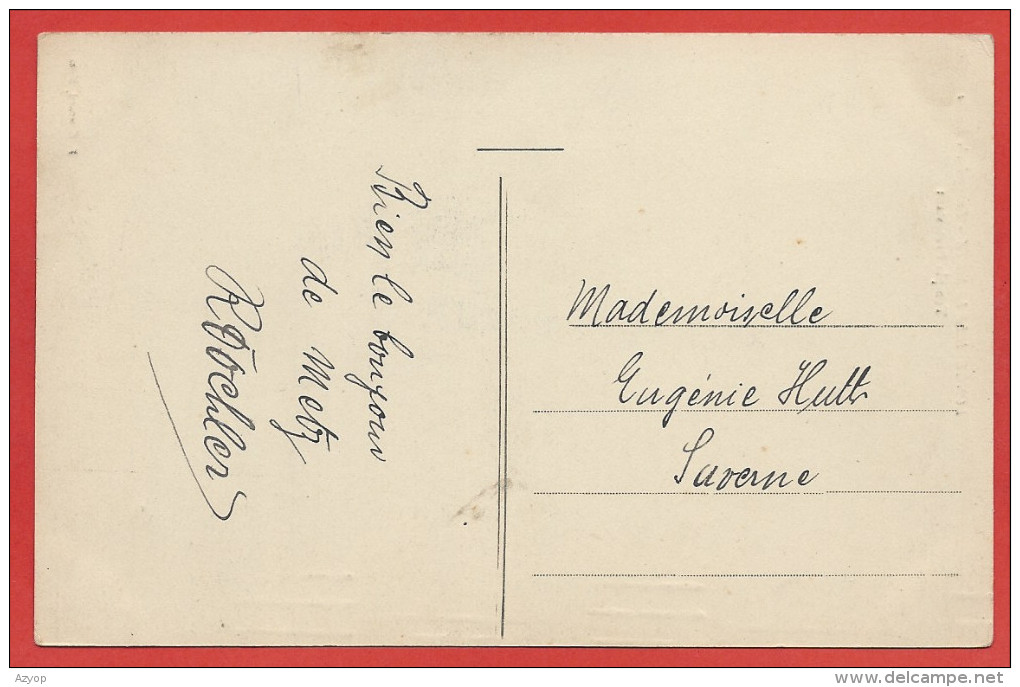 Bien le bonjour
de Metz
Mademoiselle
Eugénie Hutt
Saverne
Azyop
Delcampe.net